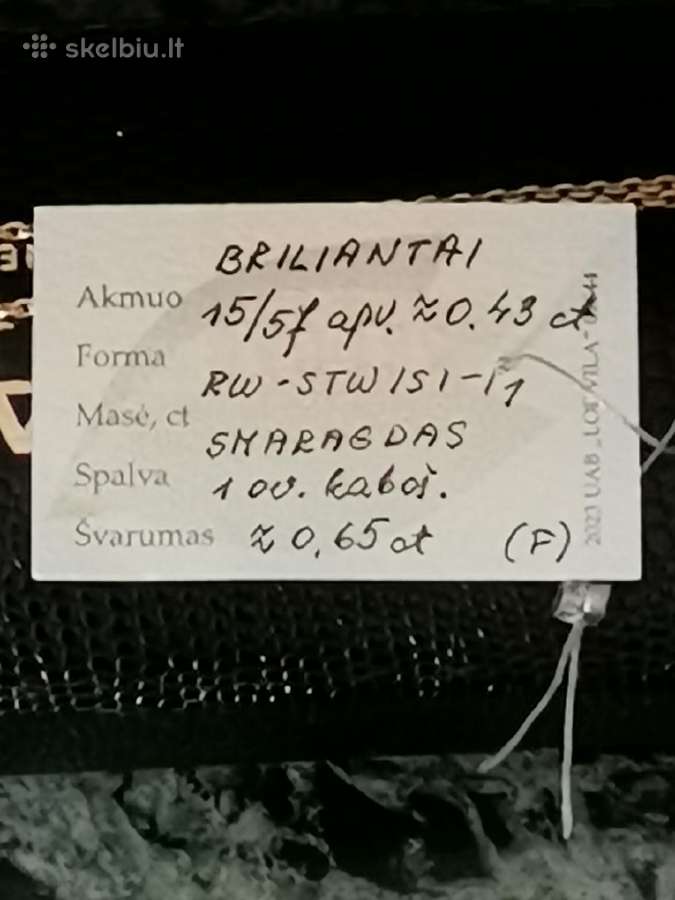 skelbiu.lt
BRILIANTAI
Akmuo
15/57 apv. ≈ 0.43 ct
Forma
RW-STW/SI-I1
Masė, ct
SMARAGDAS
Spalva
1 ov. kaboš.
Švarumas
≈ 0,65 ct (F)
2023 UAB